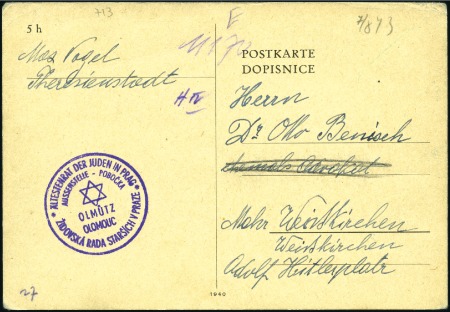 713
E
7/873
5 h
1117
POSTKARTE
DOPISNICE
Mos Vogel
Theresienstadt
H IV
Herrn
Dr. Otto Benisch
ÄLTESTENRAT DER JUDEN IN PRAG
AUSSENSTELLE - POBOČKA
OLMÜTZ
OLOMOUC
ŽIDOVSKÁ RADA STARŠÍCH V PRAZE
Mähr. Weisskirchen
Weisskirchen
Adolf Hitlerplatz
27
1940